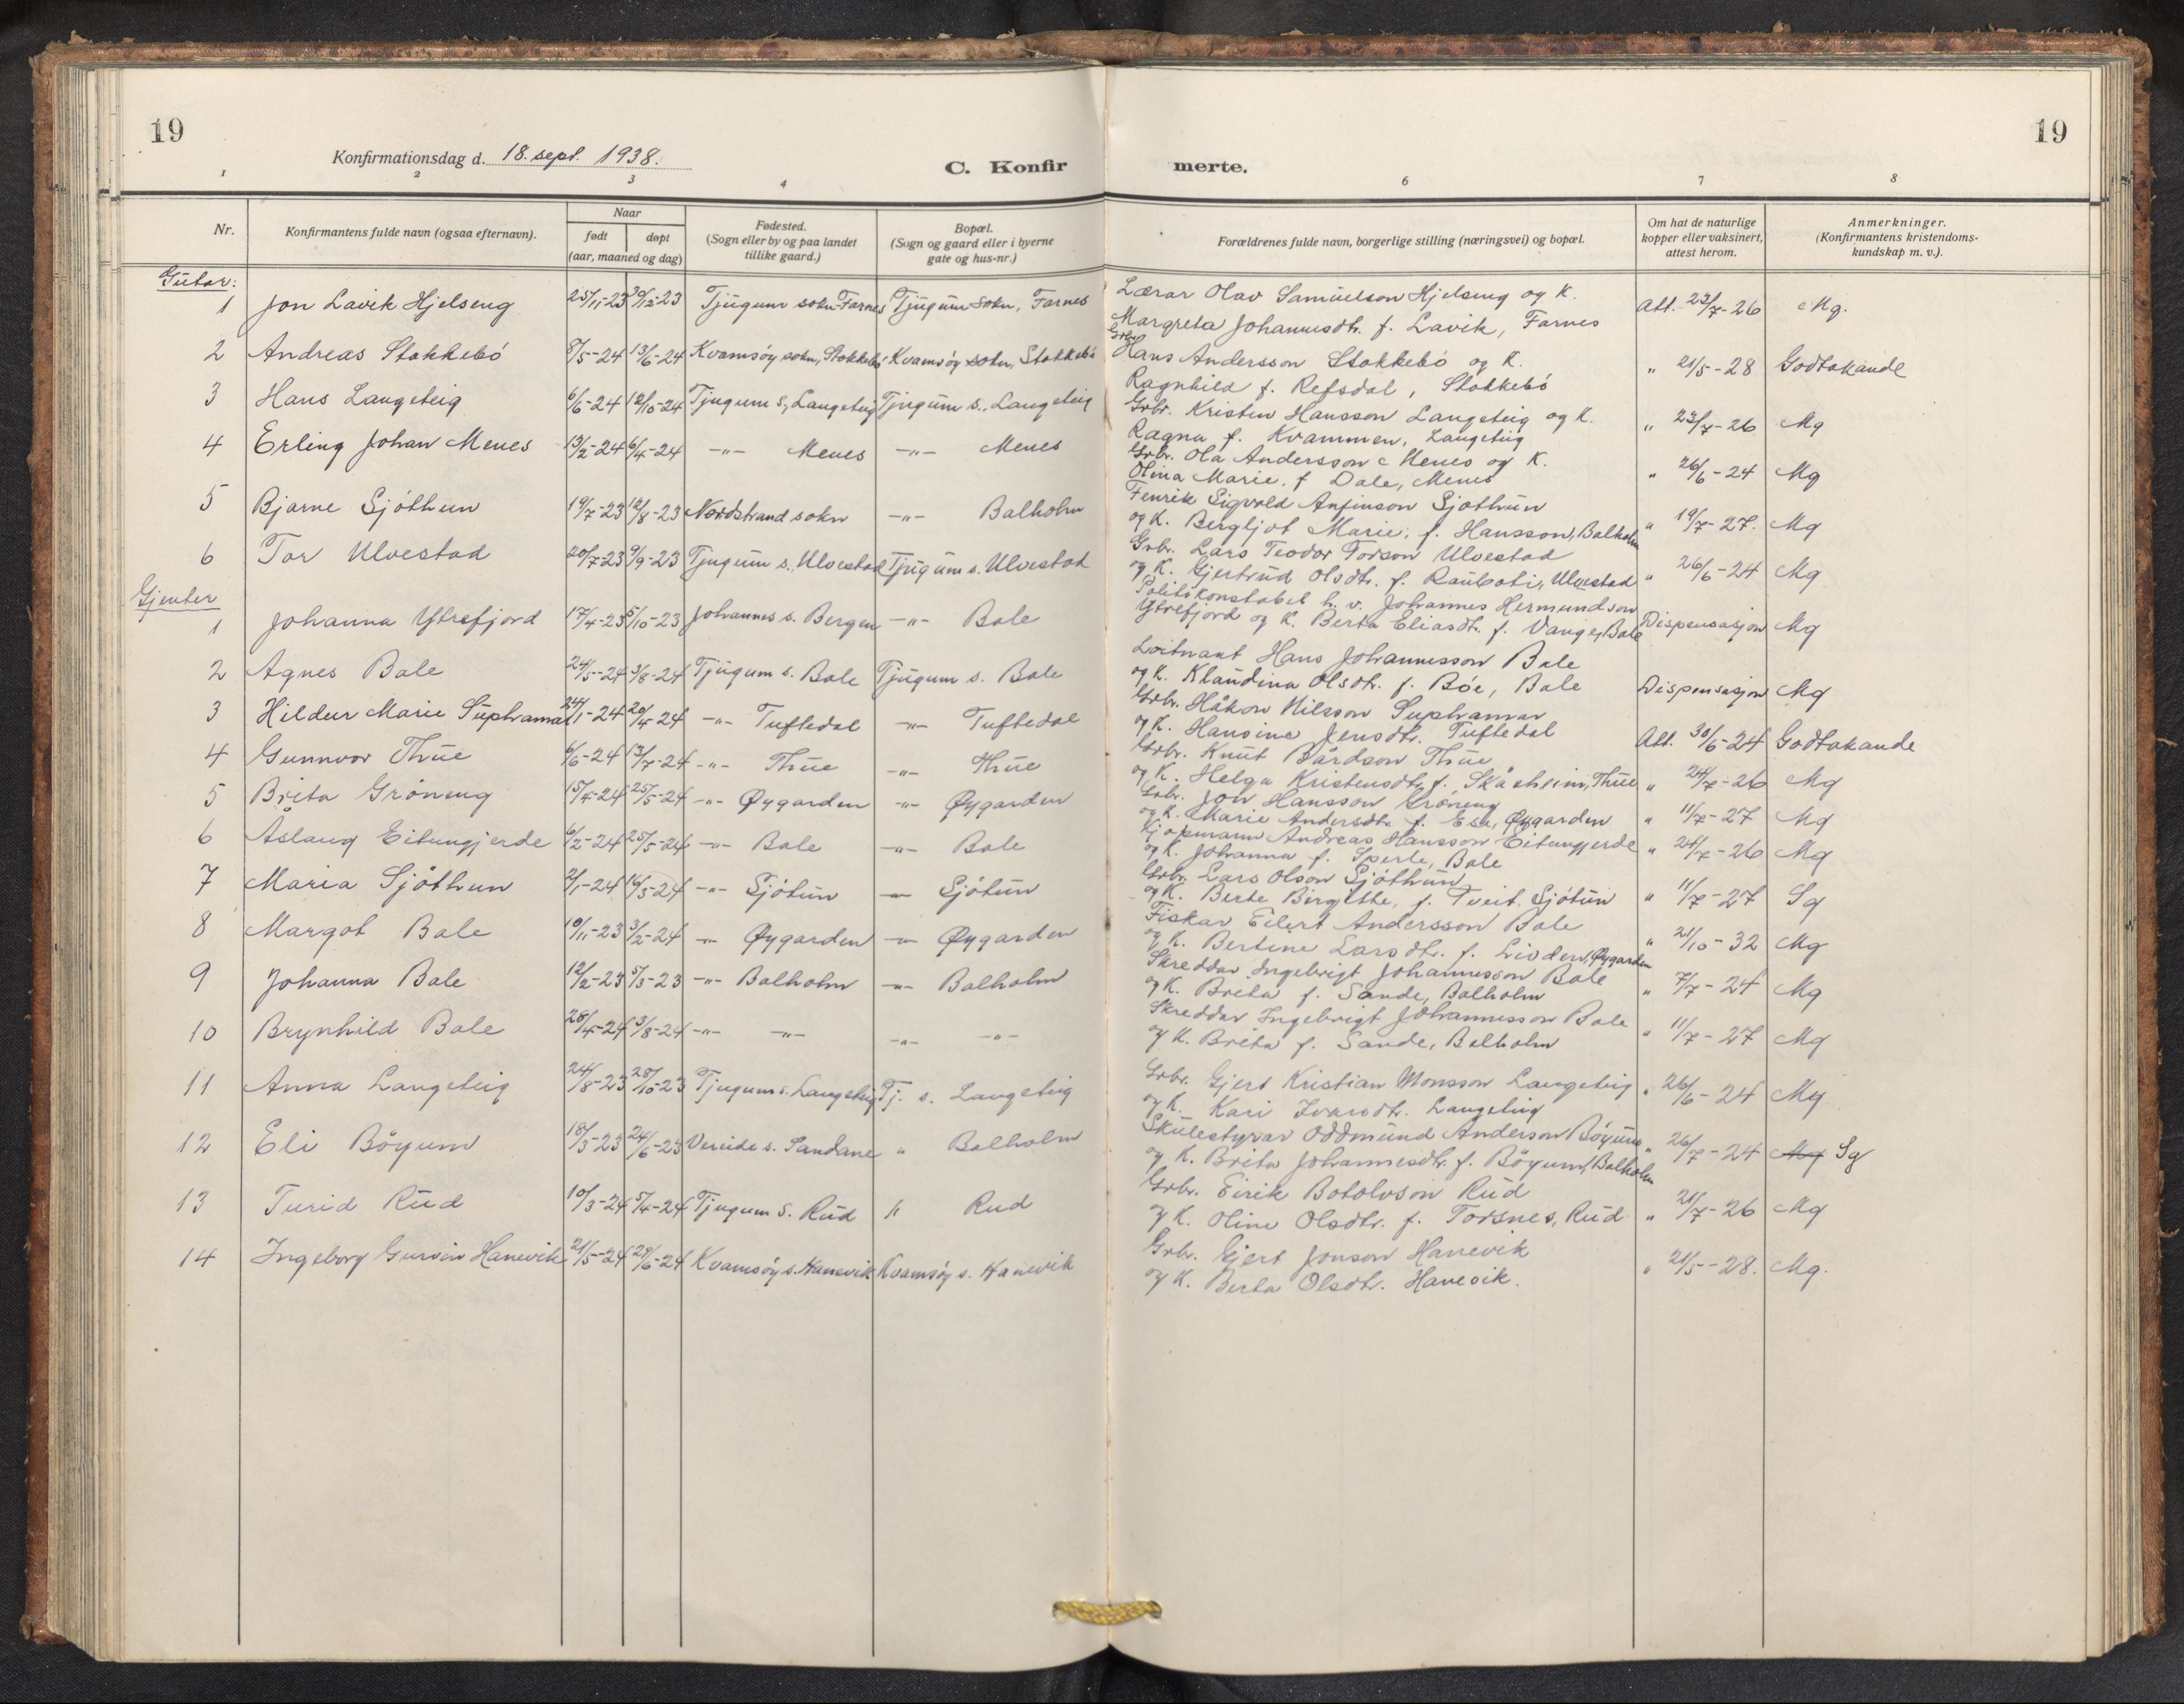 19
19
Konfirmationsdag d. 18. sept. 1938.
C. Konfir merte.
1 2 3 4 6 7 8
Nr.
Konfirmantens fulde navn (ogsaa efternavn).
Naar
født
døpt
(aar, maaned og dag)
Fødested.
(Sogn eller by og paa landet
tillike gaard.)
Bopæl.
(Sogn og gaard eller i byerne
gate og hus-nr.)
Forældrenes fulde navn, borgerlige stilling (næringsvei) og bopæl.
Om hat de naturlige
kopper eller vaksinert,
attest herom.
Anmerkninger.
(Konfirmantens kristendoms-
kundskap m. v.).
Gutar:
1 Jon Lavik Hjelseng 25/11-23 30/12-23 Tjugum sokn Farnes Tjugum Sokn, Farnes
Lærar Olav Samuelson Hjelseng og K.
Margreta Johannesdtr. f. Lavik, Farnes
Att. 23/7-26 Mg.
2 Andreas Stokkebö 8/5-24 13/6-24 Kvamsöy sokn, Stokkebö Kvamsöy sokn, Stokkebö
Grbr.
Hans Andersson Stokkebö og K.
Ragnhild f. Refsdal, Stokkebö
" 21/5-28 Godtakande
3 Hans Langeteig 6/6-24 12/10-24 Tjugum s, Langeteig Tjugum s., Langeteig
Grbr. Kristen Hansson Langeteig og K.
Ragna f. Kvammen, Langeteig
" 23/7-26 Mg
4 Erling Johan Menes 13/2-24 6/4-24 -"- Menes -"- Menes
Grbr. Ola Andersson Menes og K.
Olina Marie. f Dale, Menes
" 26/6-24 Mg
5 Bjarne Sjöthun 19/7-23 12/8-23 Nordstrand sokn -"- Balholm
Fenrik Sigvald Anfinson Sjöthun
og K. Bergljot Marie, f. Hansson, Balholm
" 19/7-27. Mg
6 Tor Ulvestad 20/7-23 9/9-23 Tjugum s. Ulvestad Tjugum s. Ulvestad
Grbr. Lars Teodor Torson Ulvestad
og K. Gjertrud Olsdtr. f. Rauboti, Ulvestad
" 26/6-24 Mg
Gjenter
1 Johanna Ytrefjord 17/4-23 5/10-23 Johannes s. Bergen -"- Bale
Politikonstabel h. v. Johannes Hermundson
Ytrefjord og K. Berta Eliasdt. f. Vange, Bale
Dispensasjon Mg
2 Agnes Bale 24/5-24 3/8-24 Tjugum s. Bale Tjugum s. Bale
Loitnant Hans Johannesson Bale
og K. Klaudina Olsdtr. f. Böe, Bale
Dispensasjon Mg
3 Hildur Marie Suphamar 24/1-24 20/4-24 -"- Tuftedal -"- Tuftedal
Grbr. Håkon Nilsson Suphamar
og K. Hansine Jensdtr. Tuftedal
Att. 30/6-24 Godtakande
4 Gunnvor Thue 6/6-24 13/7-24 -"- Thue -"- Thue
Grbr. Knut Bårdson Thue
og K. Helga Kristensdtr. f. Skåsheim, Thue
" 24/7-26 Mg
5 Brita Gröneng 15/4-24 25/5-24 -"- Øygarden -"- Øygarden
Grbr. Jon Hansson Gröneng
og K. Marie Andersdtr. f. Ese, Øygarden
" 11/7-27 Mg
6 Aslaug Eitungjerde 6/2-24 25/5-24 -"- Bale -"- Bale
Kjöpmann Andreas Hansson Eitungjerde
og K. Johanna f. Sperle, Bale
" 24/7-26 Mg
7 Maria Sjöthun 2/1-24 16/3-24 -"- Sjötun -"- Sjötun
Grbr. Lars Olson Sjöthun
og K. Berte Birgitte, f. Tveit. Sjötun
" 11/7-27 Sg
8 Margot Bale 10/11-23 3/2-24 -"- Øygarden -"- Øygarden
Fiskar Eilert Andersson Bale
og K. Bertine Larsdtr. f. Livden, Øygarden
" 21/10-32 Mg
9 Johanna Bale 12/2-23 5/3-23 -"- Balholm -"- Balholm
Skreddar Ingebrigt Johannesson Bale
og K. Brita f. Sande, Balholm
" 7/7-24 Mg
10 Brynhild Bale 28/4-24 3/8-24 -"- -"- -"- -"-
Skreddar Ingebrigt Johannesson Bale
og K. Brita f. Sande, Balholm
" 11/7-27 Mg
11 Anna Langeteig 24/8-23 28/10-23 Tjugum s. Langeteig Tj. s. Langeteig
Grbr. Gjert Kristian Monsson Langeteig
og K. Kari Ivarsdtr. Langeteig
" 26/6-24 Mg
12 Eli Böyum 18/3-23 24/6-23 Vereide s. Sandane " Balholm
Skulestyrar Oddmund Anderson Böyum
og K. Brita Johannesdtr. f. Böyum, Balholm
" 26/7-24 Mg Sg
13 Turid Rud 10/3-24 5/4-24 Tjugum S. Rud " Rud
Grbr. Eirik Botolvson Rud
og K. Oline Olsdtr. f. Torsnes, Rud
" 21/7-26 Mg
14 Ingeborg Gurine Hanevik 21/5-24 29/6-24 Kvamsöy s. Hanevik Kvamsöy s. Hanevik
Grbr. Gjert Jonson Hanevik
og K. Berta Olsdtr. Hanevik.
" 21/5-28. Mg.